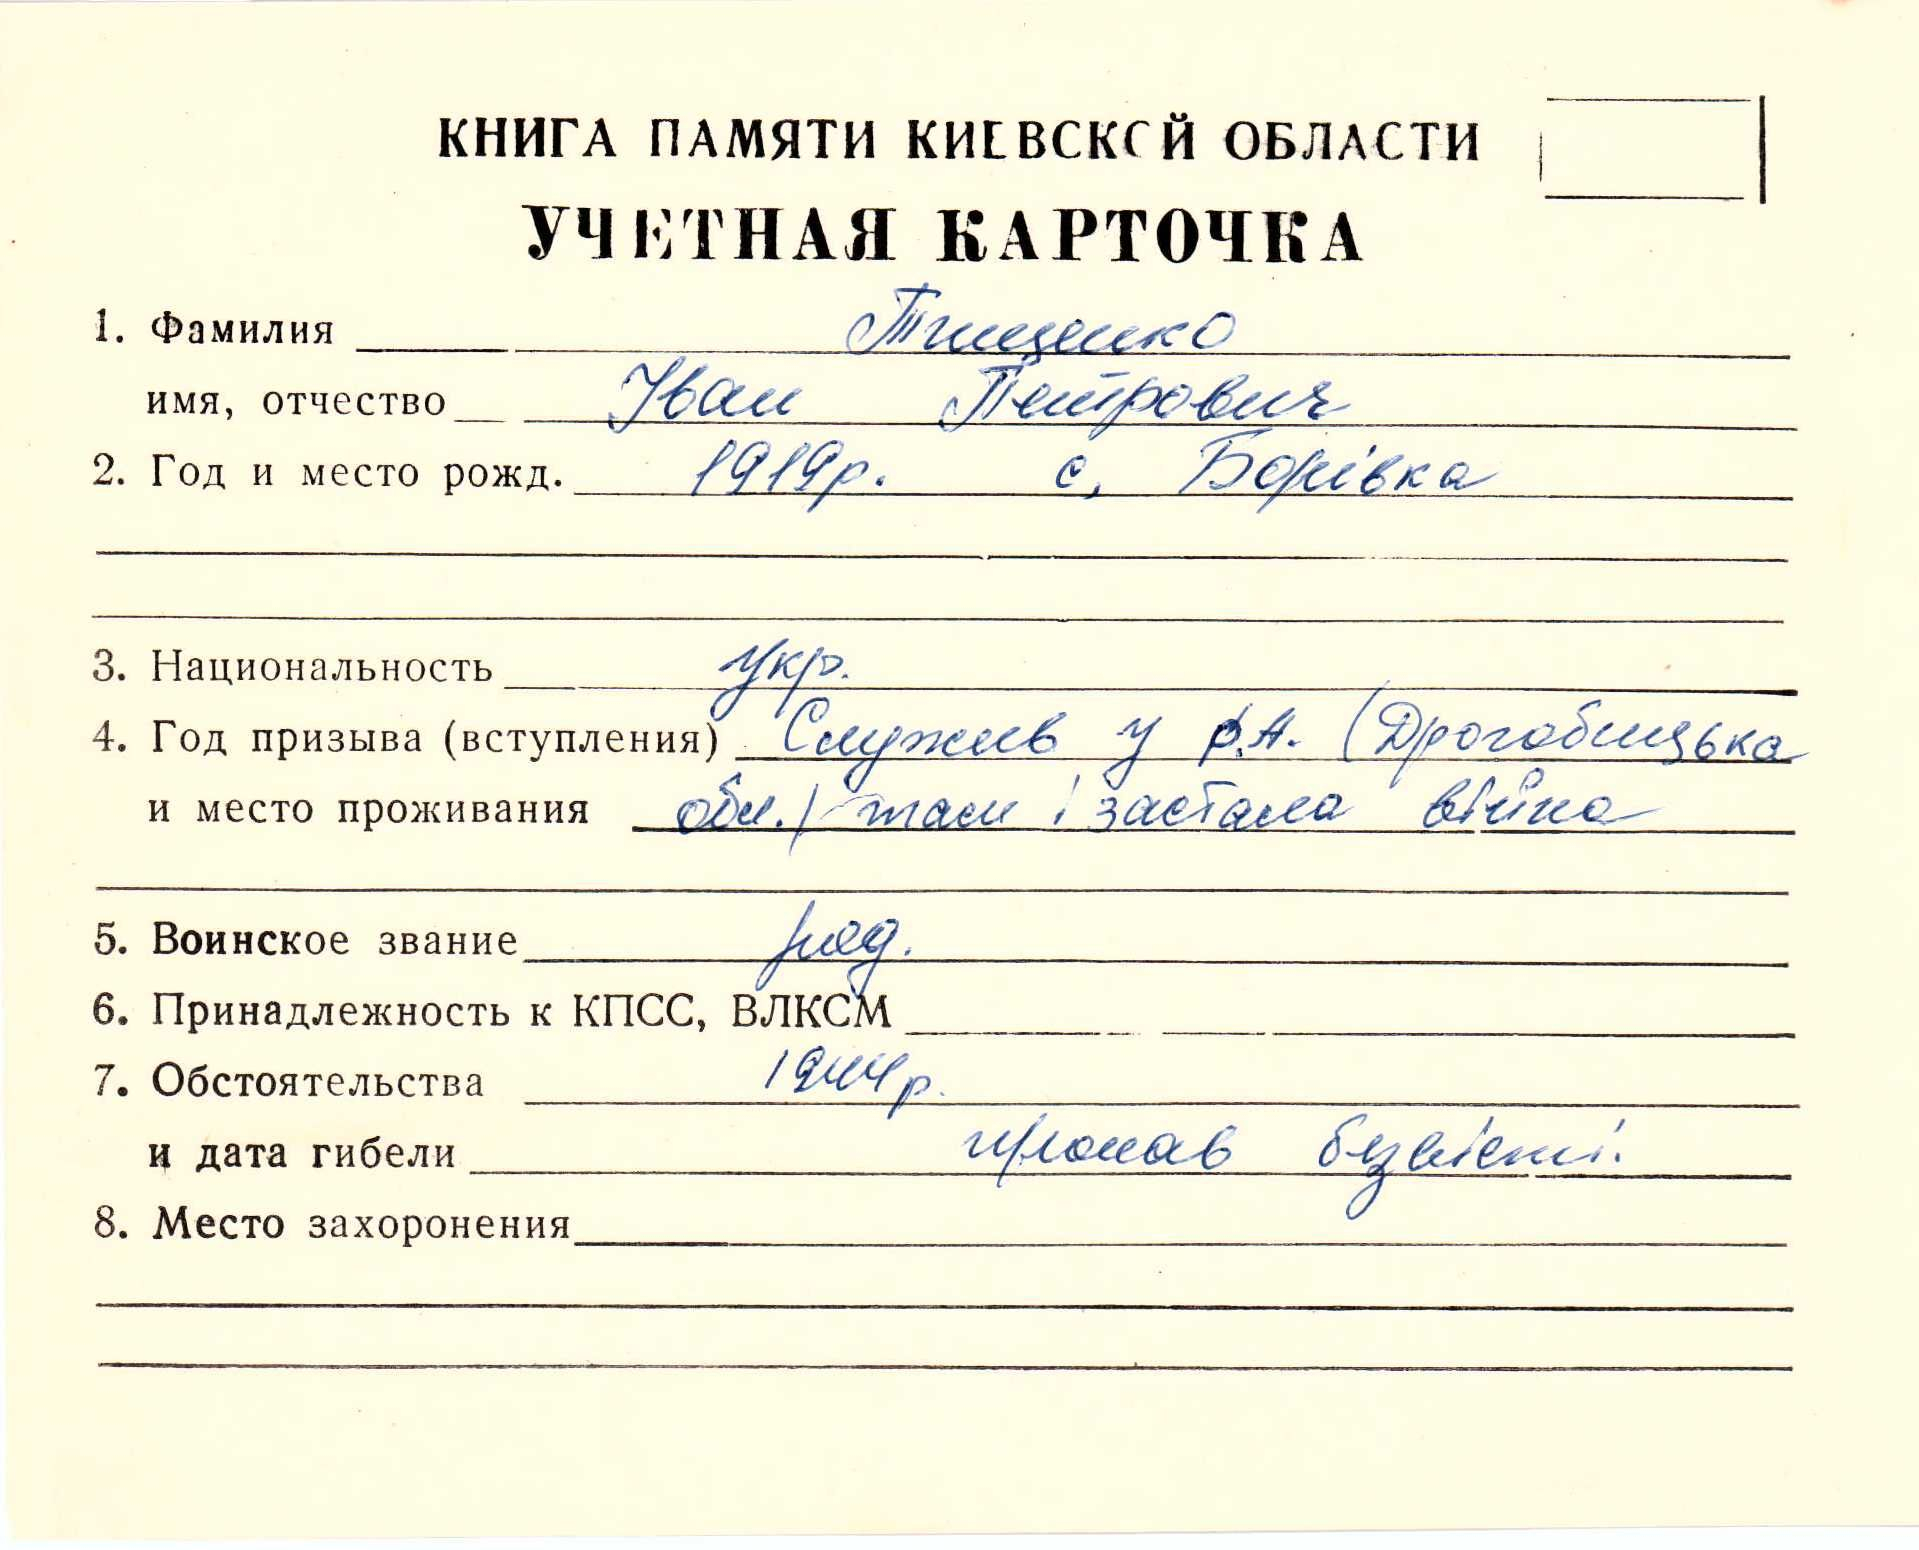 КНИГА ПАМЯТИ КИЕВСКОЙ ОБЛАСТИ
УЧЕТНАЯ КАРТОЧКА
1. Фамилия Тищенко
имя, отчество Іван Петрович
2. Год и место рожд. 1919р. с. Борівка
3. Национальность укр.
4. Год призыва (вступления) Служив у р.А. (Дрогобицька
и место проживания обл.) там і застала війна
5. Воинское звание ряд.
6. Принадлежность к КПСС, ВЛКСМ
7. Обстоятельства 1944р.
и дата гибели пропав безвісті.
8. Место захоронения